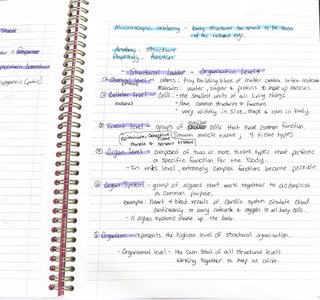 Stable
Response
Microscopic anatomy - Body structures too small to be seen
w/ the naked eye.
Anatomy - structure
Physiology - function
Structural ladder - Organization Levels
① Chemical level - atoms: tiny building block of matter combine to form molecules
molecules: water, sugar & proteins to make up muscles
② Cellular level - Cells - the smallest units of all living things
- have common structures & functions
- vary widely in size, shape & roles in body
③ Tissue level - groups of similar cells that have common function.
Epithelium, connective tissue
muscle & nervous tissue
muscle tissue, 4 types tissue
④ Organ level - composed of two or more tissue types that performs
a specific function for the body
- In this level, extremely complex functions become possible
⑤ Organ System - group of organs that work together to accomplish
a common purpose.
Example: Heart & blood vessels of cardio system circulate blood
continuously to carry nutrients & oxygen to all body cells.
- 11 organ systems make up the body.
⑥ Organism - represents the highest level of structural organization.
- Organismal level - the sum total of all structural levels
working together to keep us alive.